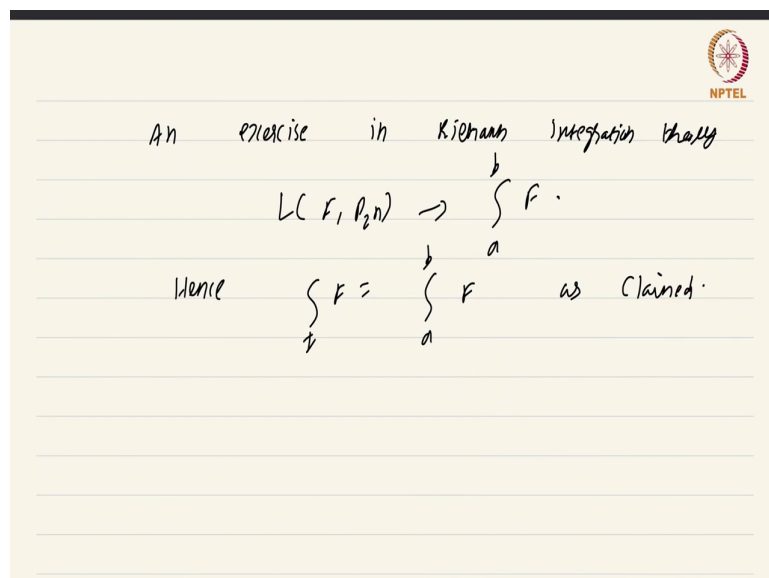 NPTEL
An exercise in Riemann Integration theory
L(F, P_{2^n}) → ∫_a^b F.
Hence ∫_I F = ∫_a^b F as claimed.